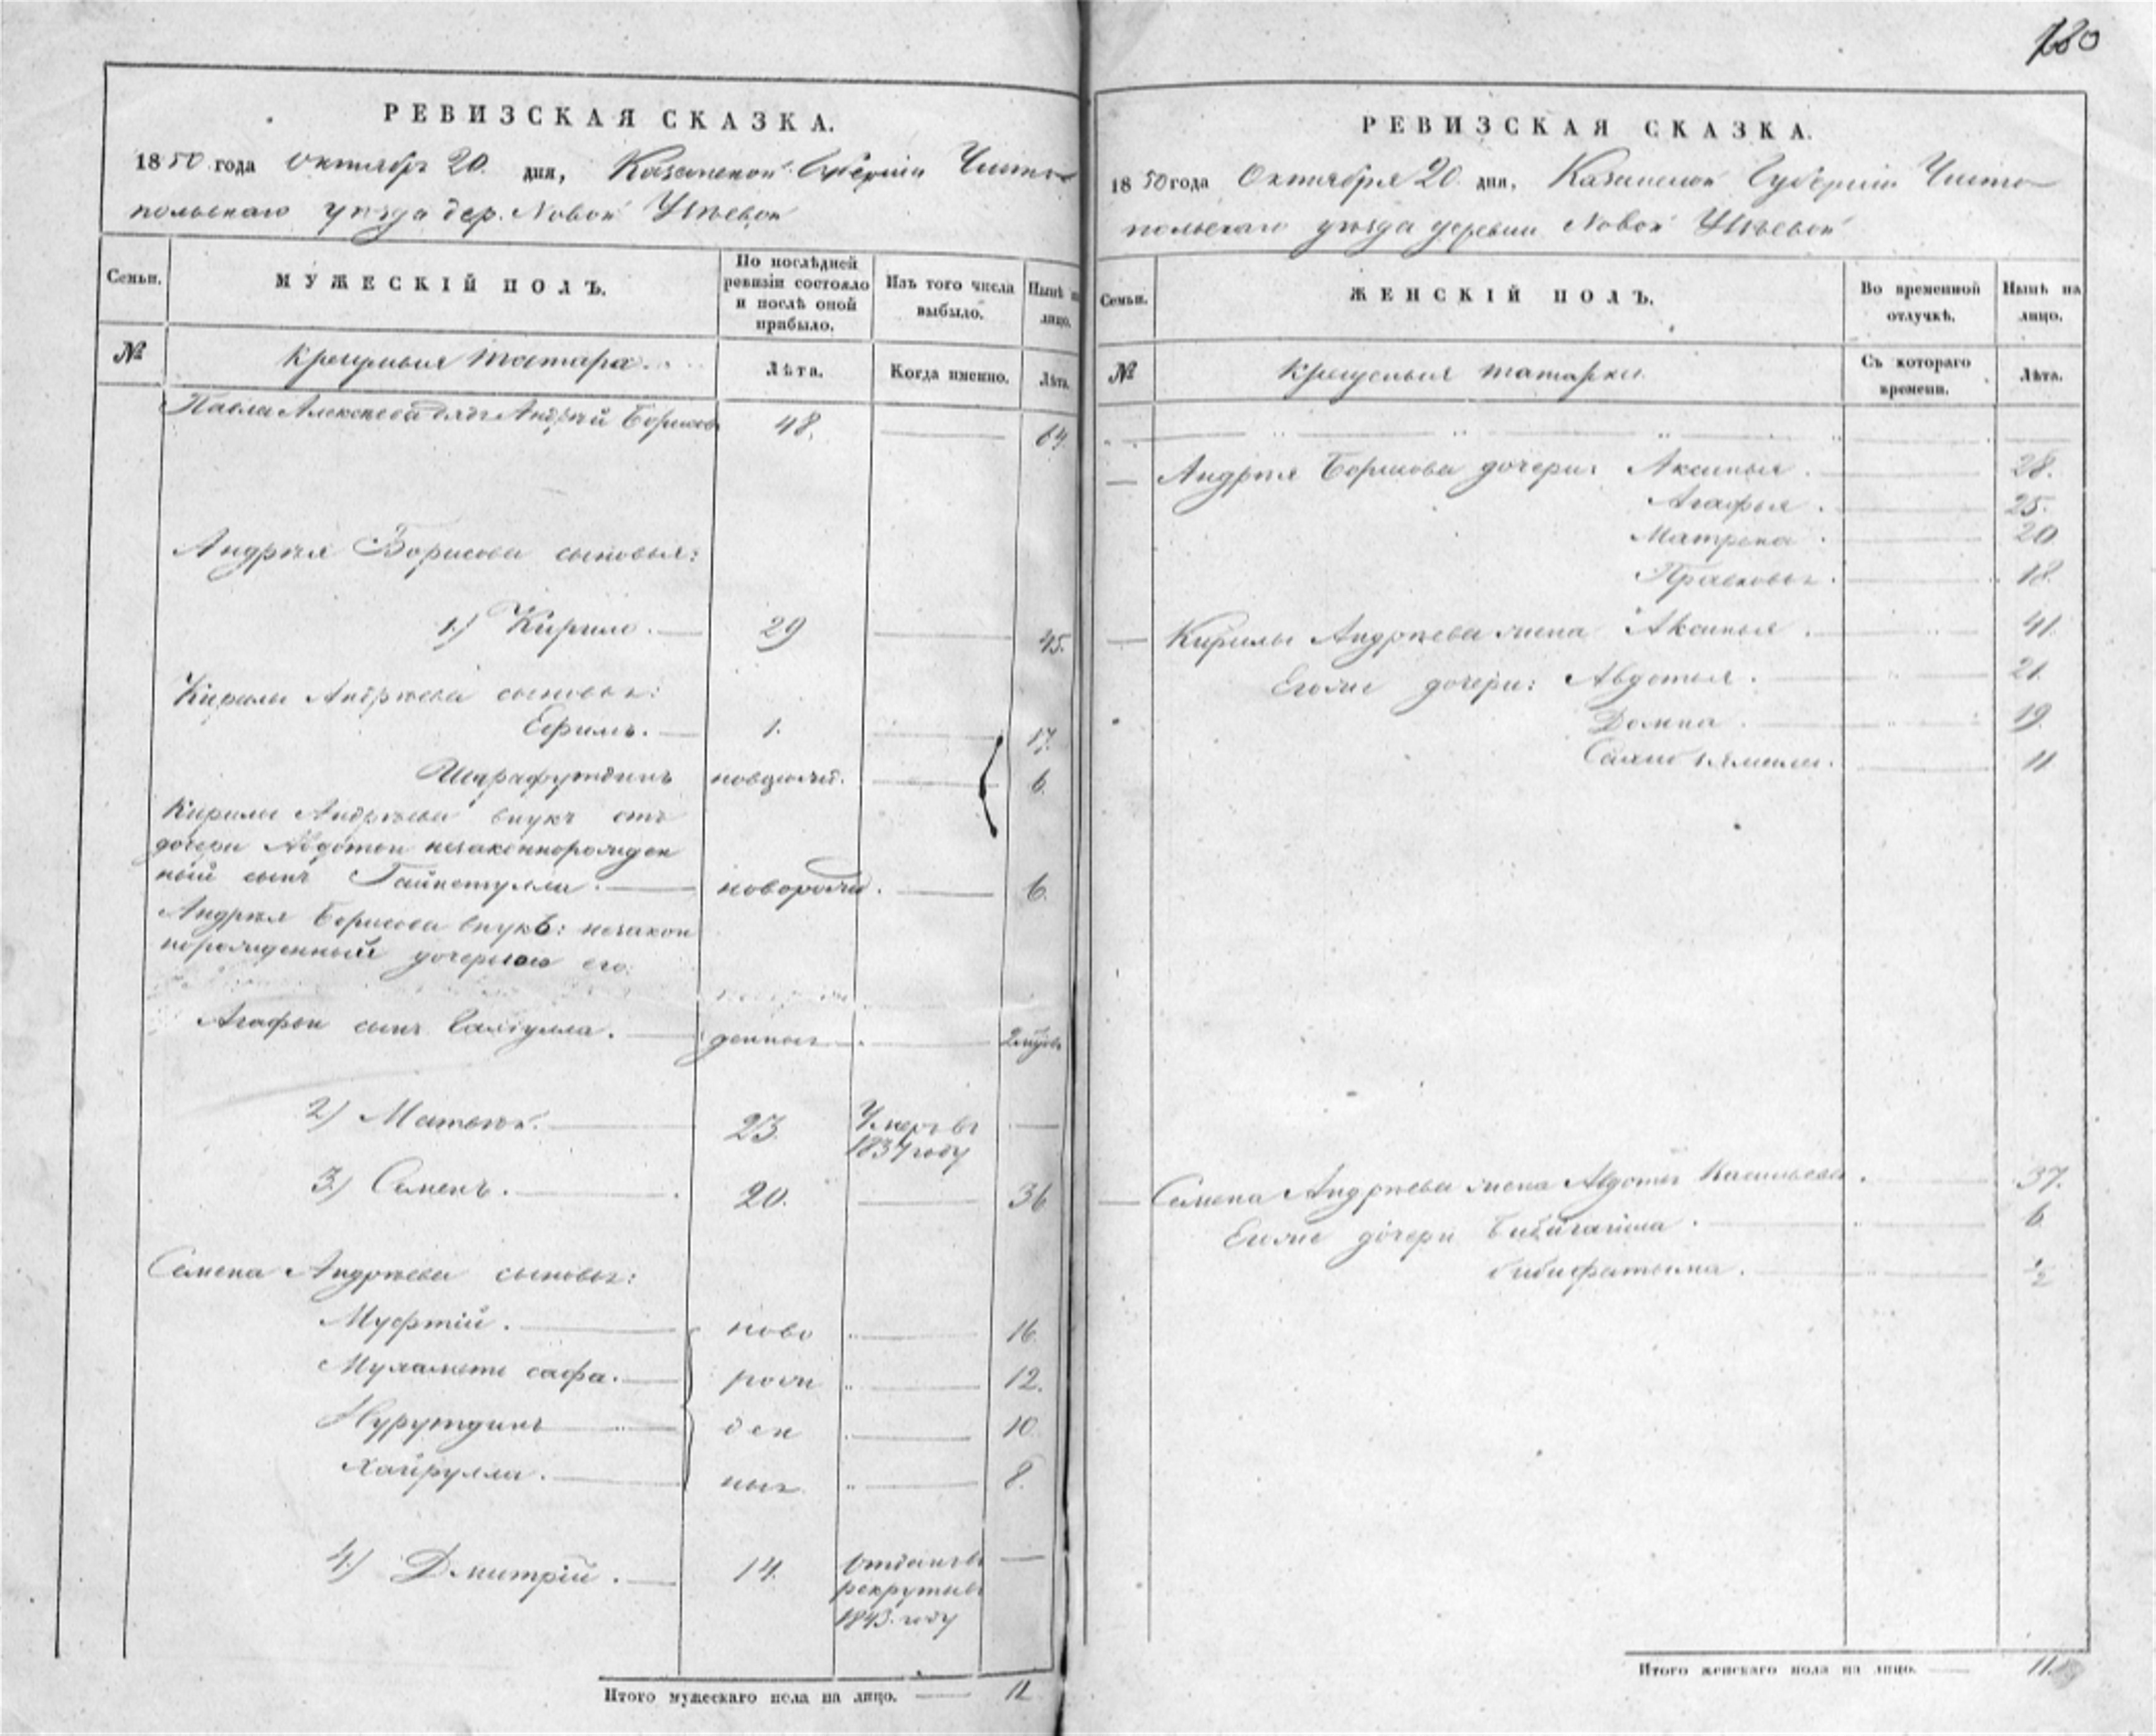 РЕВИЗСКАЯ СКАЗКА.
1850 года Октября 20. дня, Казанской Губерніи Чисто
польскаго уѣзда дер. Новой
Семьи.
МУЖЕСКІЙ ПОЛЪ.
По послѣдней ревизіи состояло и послѣ оной прибыло.
Изъ того числа выбыло.
Нынѣ на лицо.
№
Крещеныя татара.
Лѣта.
Когда именно.
Лѣта.
Павла Алексѣева дядя Андрѣй Борисовъ 48. 64.
Андрѣя Борисова сыновья:
1.) Кирило. 29 45.
Кирилы Андрѣева сыновья:
Ефимъ. 1. 17.
Шарафутдинъ 6.
Кирилы Андрѣева внукъ отъ
дочери Авдотьи незаконнорожден
ный сынъ Гайнетулла. новорожд. 6.
Андрѣя Борисова внукъ: незакон
норожденный дочерью его:
Агафьи сынъ денныя
2) Матвѣй. 23. Умеръ въ
1834 году
3.) Семенъ. 20. 36
Семена Андрѣева сыновья:
Муфтій. ново 16.
Мухаметь сафа. рож 12.
Нурутдинъ ден 10.
Хайрулла. ныя 8.
4.) Дмитрій. 14. Отданъ въ
рекруты въ
1843. году
Итого мужескаго пола на лицо. 11
180
РЕВИЗСКАЯ СКАЗКА.
1850 года Октября 20. дня, Казанской Губерніи Чисто
польскаго уѣзда деревни Новой
Семьи.
ЖЕНСКІЙ ПОЛЪ.
Во временной отлучкѣ.
Нынѣ на лицо.
№
Крещеныя татарки.
Съ котораго времени.
Лѣта.
Андрѣя Борисова дочери: Аксинья. 28.
Агафья. 25.
Матрена. 20
Прасковья. 18.
Кирилы Андрѣева жена Аксинья. 41.
Егоже дочери: Авдотья. 21.
Домна. 19.
11
Семена Андрѣева жена Авдотья Васильева. 37.
Егоже дочери 6
Бибифатыма. 1/2
Итого женскаго пола на лицо. 11.